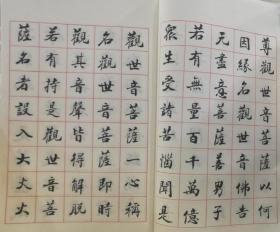 尊觀世音菩薩以何
因緣名觀世音佛告
无盡意菩薩善男子
若有無量百千萬億
眾生受諸苦惱聞是
觀世音菩薩一心稱
名觀世音菩薩即時
觀其音聲皆得解脫
若有持是觀世音菩
薩名者設入大火火